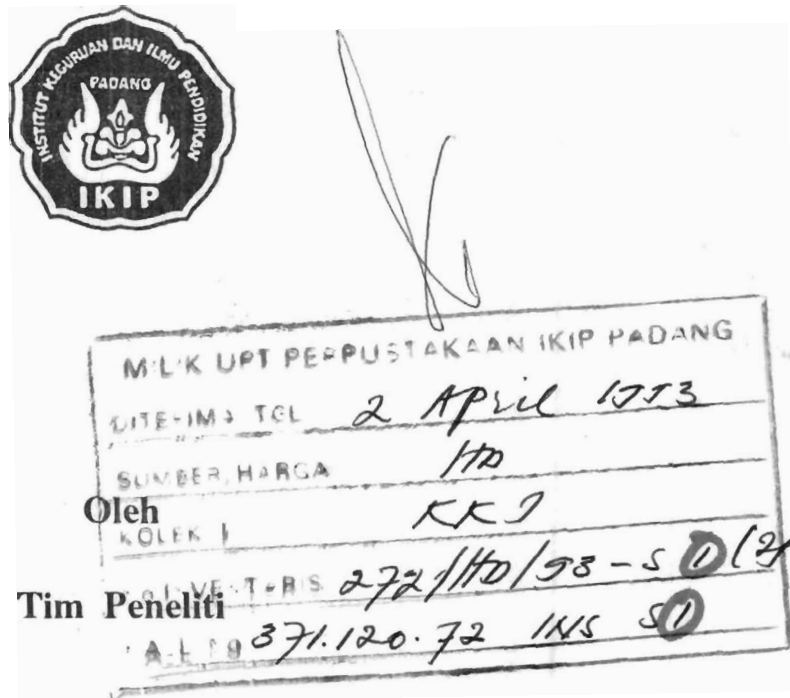 INSTITUT KEGURUAN DAN ILMU PENDIDIKAN
PADANG
IKIP
MILIK UPT PERPUSTAKAAN IKIP PADANG
DITERIMA TGL 2 April 1993
SUMBER, HARGA HD
Oleh
KOLEKSI KKI
272/HD/93-S 1 (2)
Tim Peneliti
371.120.72 INS S1